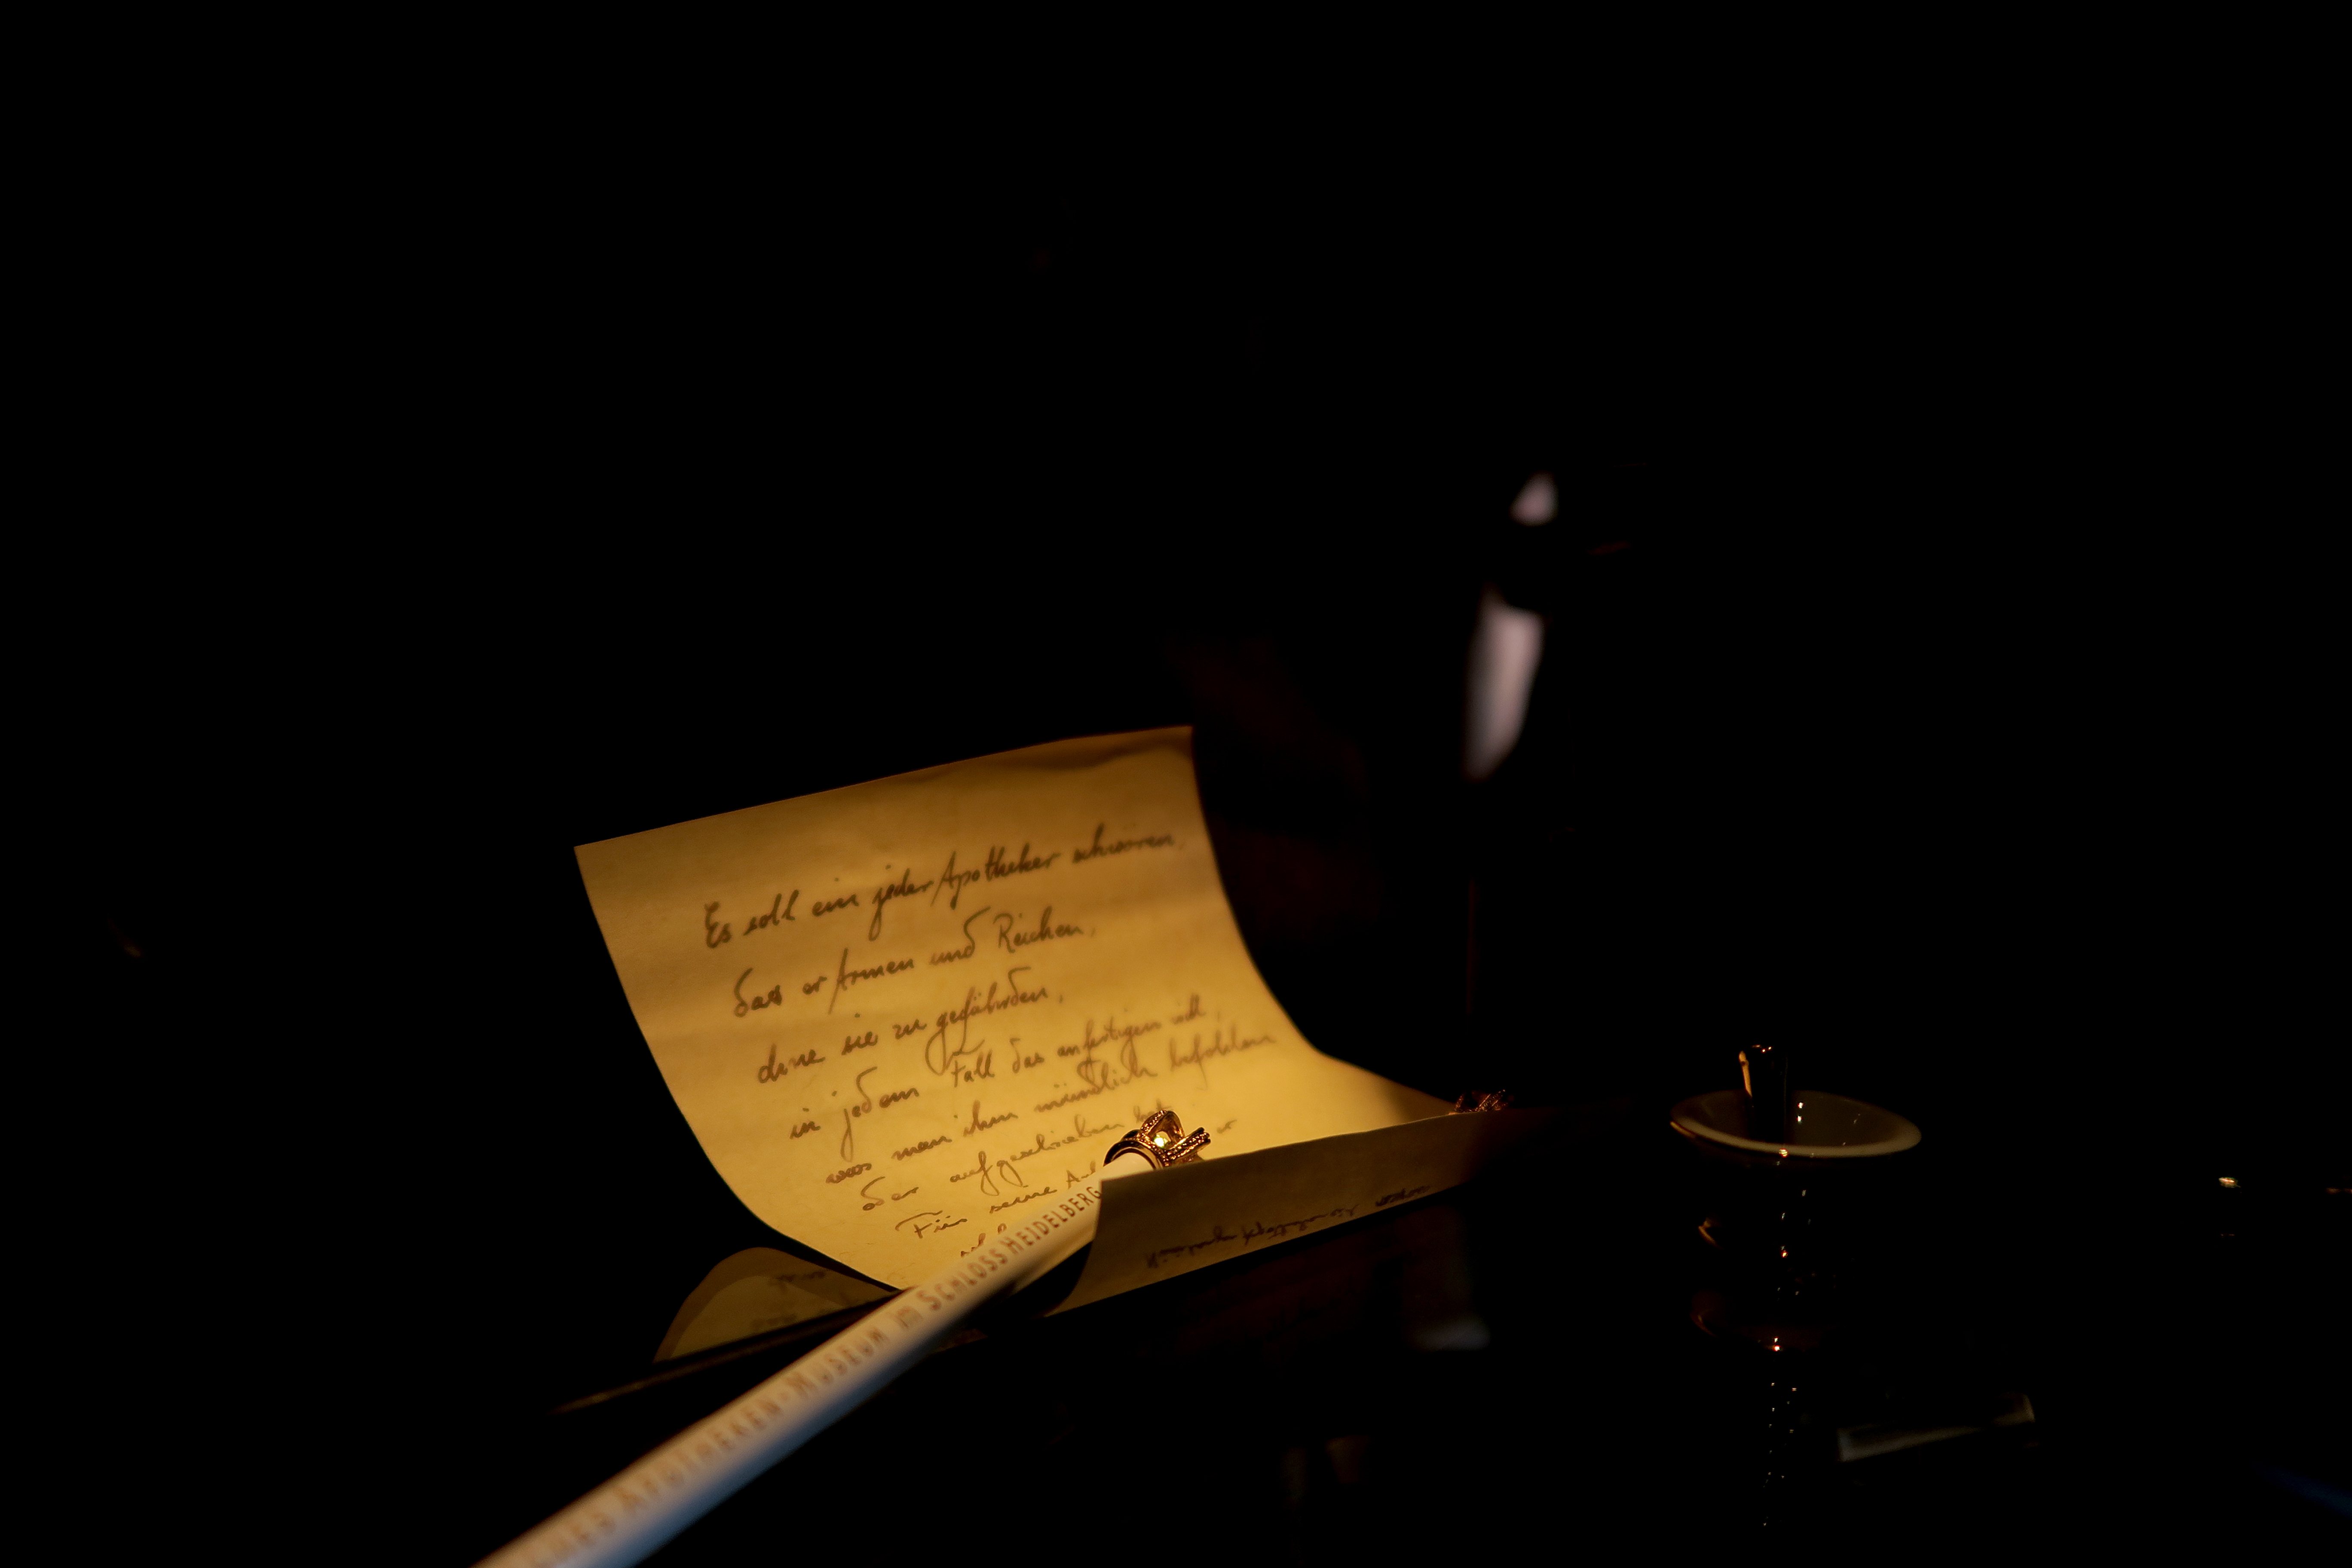 Es soll ein jeder Apotheker schwören,
dass er Armen und Reichen,
ohne sie zu gefährden,
in jedem Fall das anfertigen soll,
was man ihm mündlich befohlen
oder aufgeschrieben hat
Für seine
APOTHEKEN-MUSEUM IM SCHLOSS HEIDELBERG